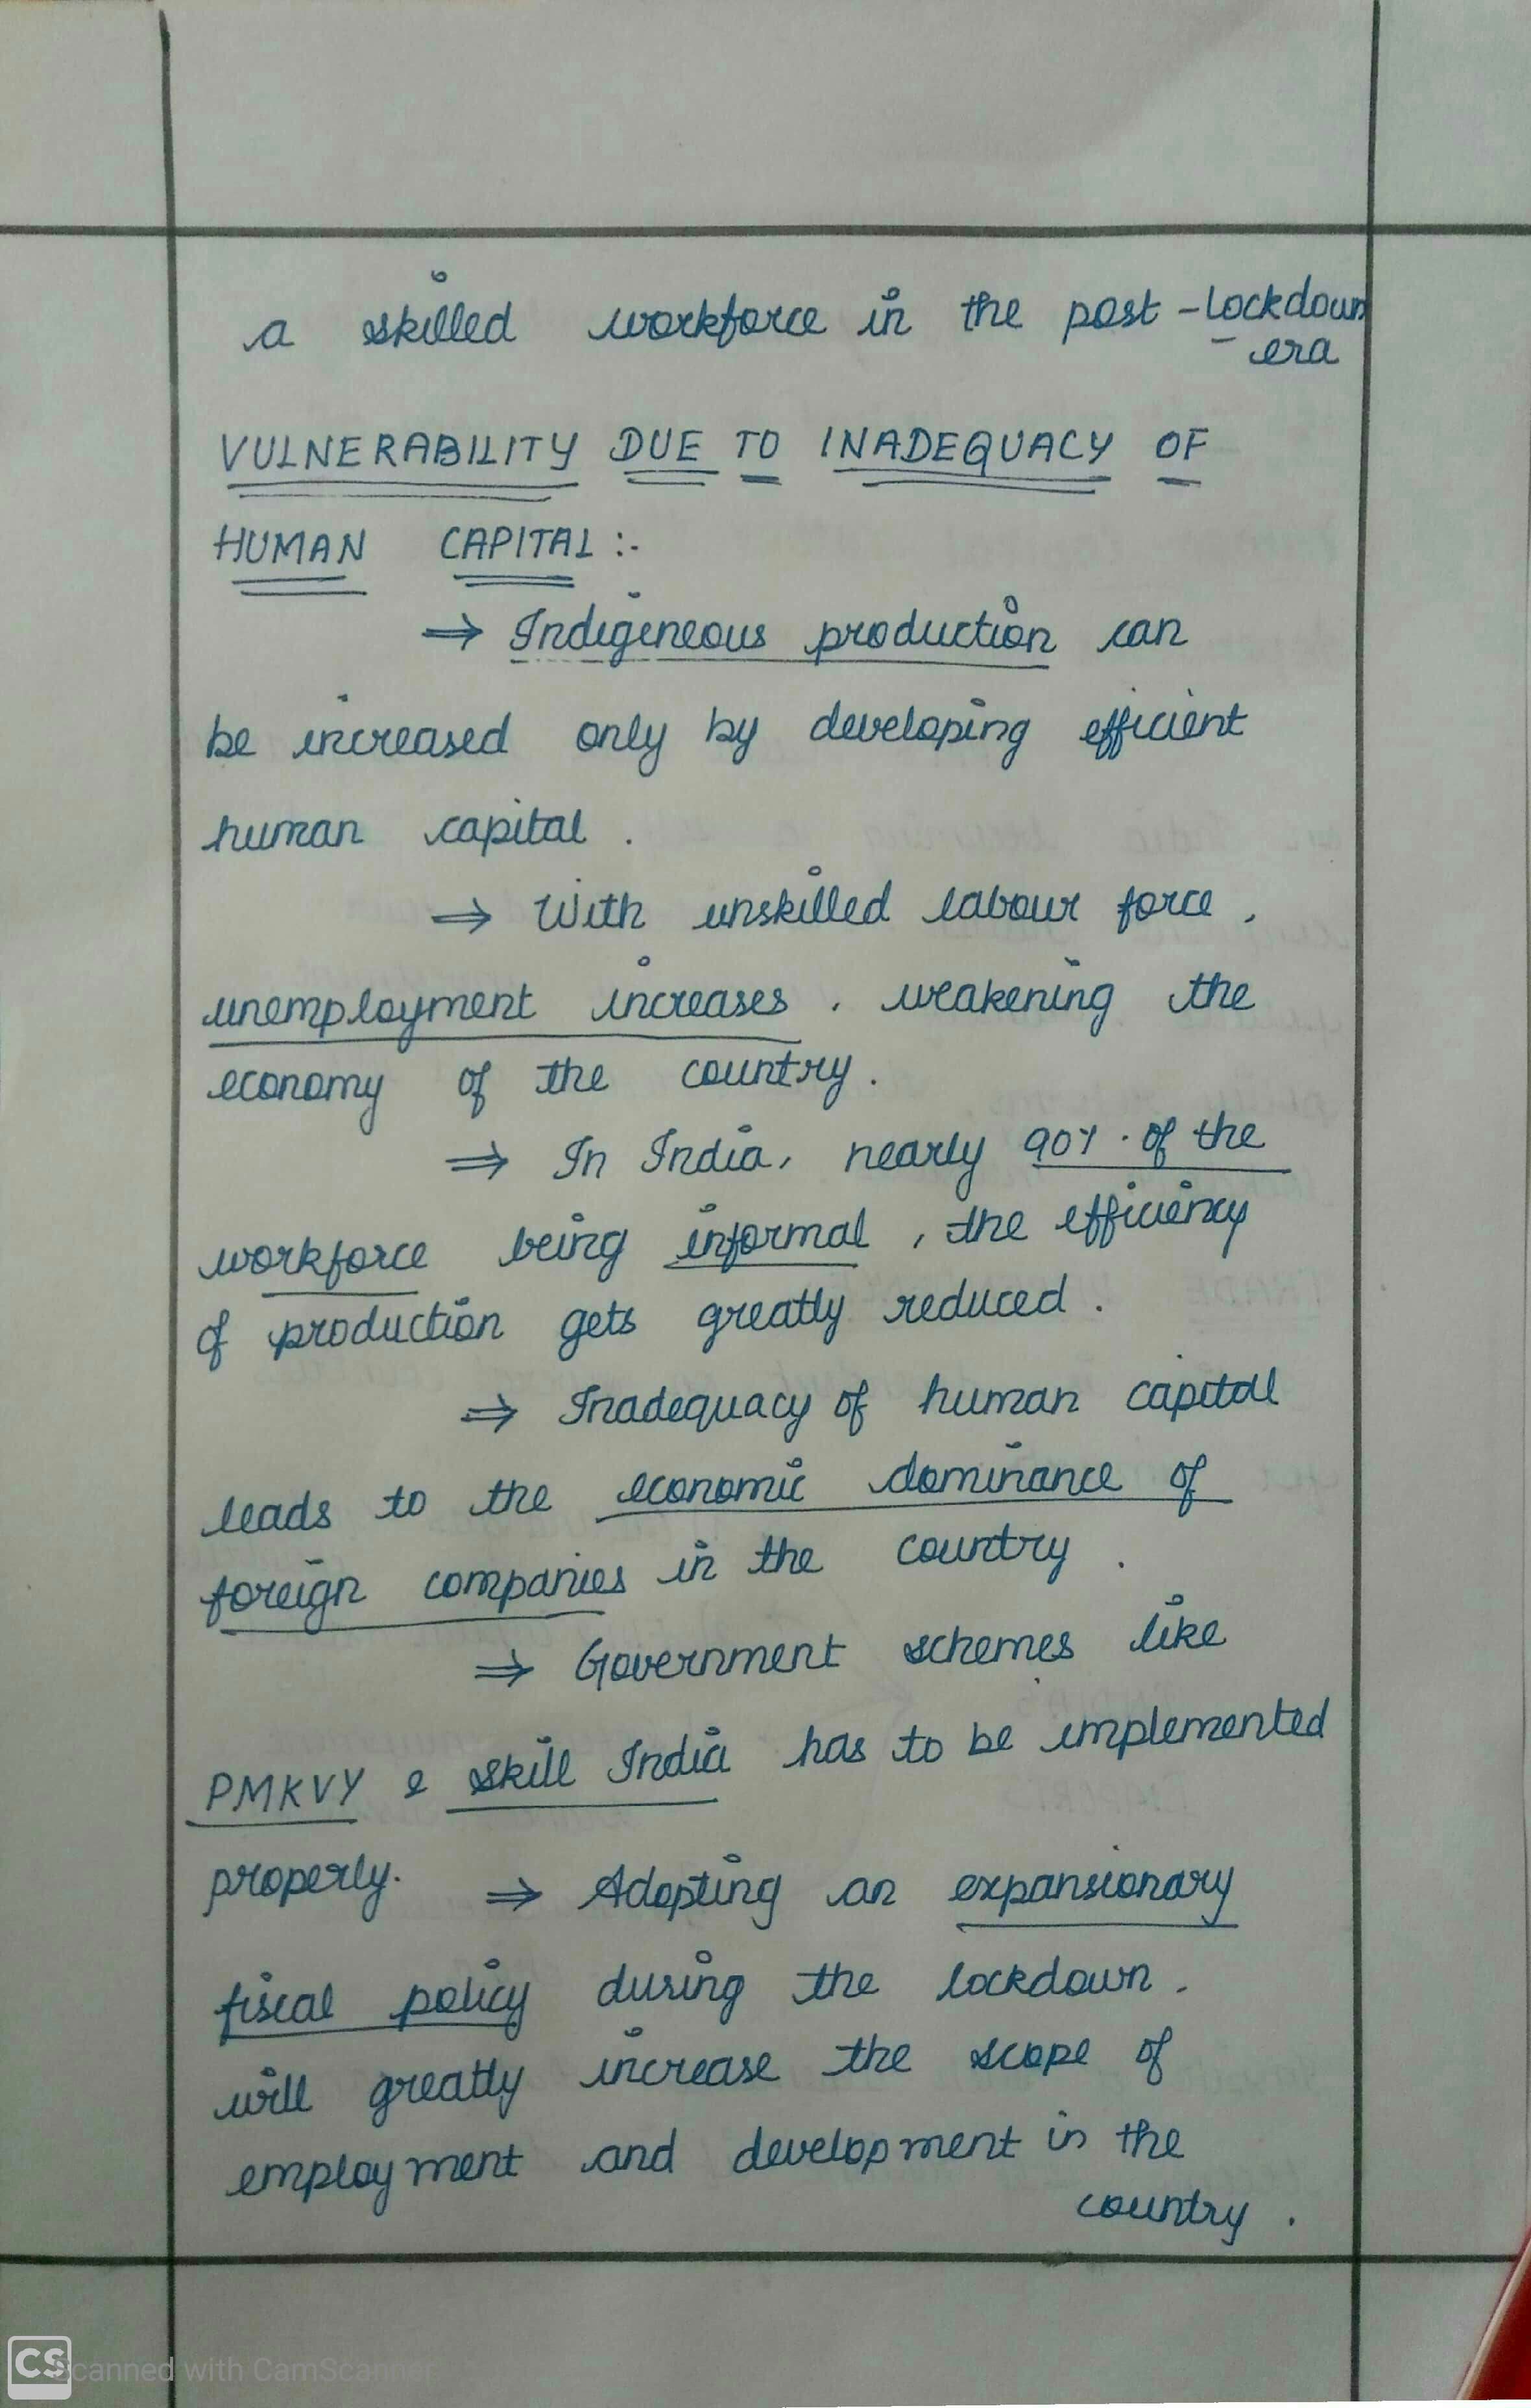 a skilled workforce in the post-Lockdown
era
VULNERABILITY DUE TO INADEQUACY OF
HUMAN CAPITAL :-
⇒ Indigeneous production can
be increased only by developing efficient
human capital .
⇒ With unskilled labour force ,
unemployment increases , weakening the
economy of the country .
⇒ In India, nearly 90% of the
workforce being informal , the efficiency
of production gets greatly reduced .
⇒ Inadequacy of human capital
leads to the economic dominance of
foreign companies in the country .
⇒ Government schemes like
PMKVY & Skill India has to be implemented
properly. ⇒ Adopting an expansionary
fiscal policy during the lockdown ,
will greatly increase the scope of
employment and development in the
country .
CS Scanned with CamScanner